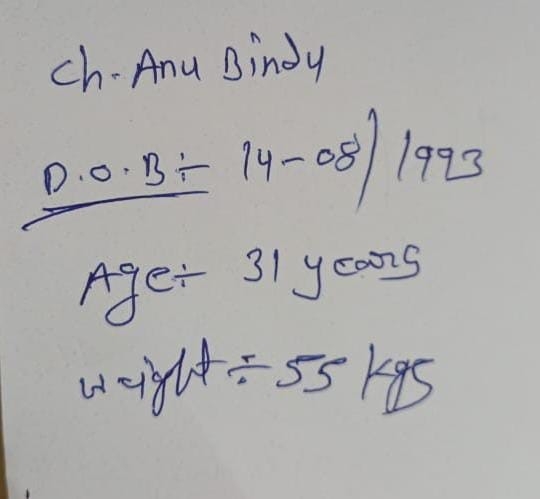 Ch. Anu Bindy
D.O.B÷ 14-08/1993
Age÷ 31 years
weight÷ 55 kgs